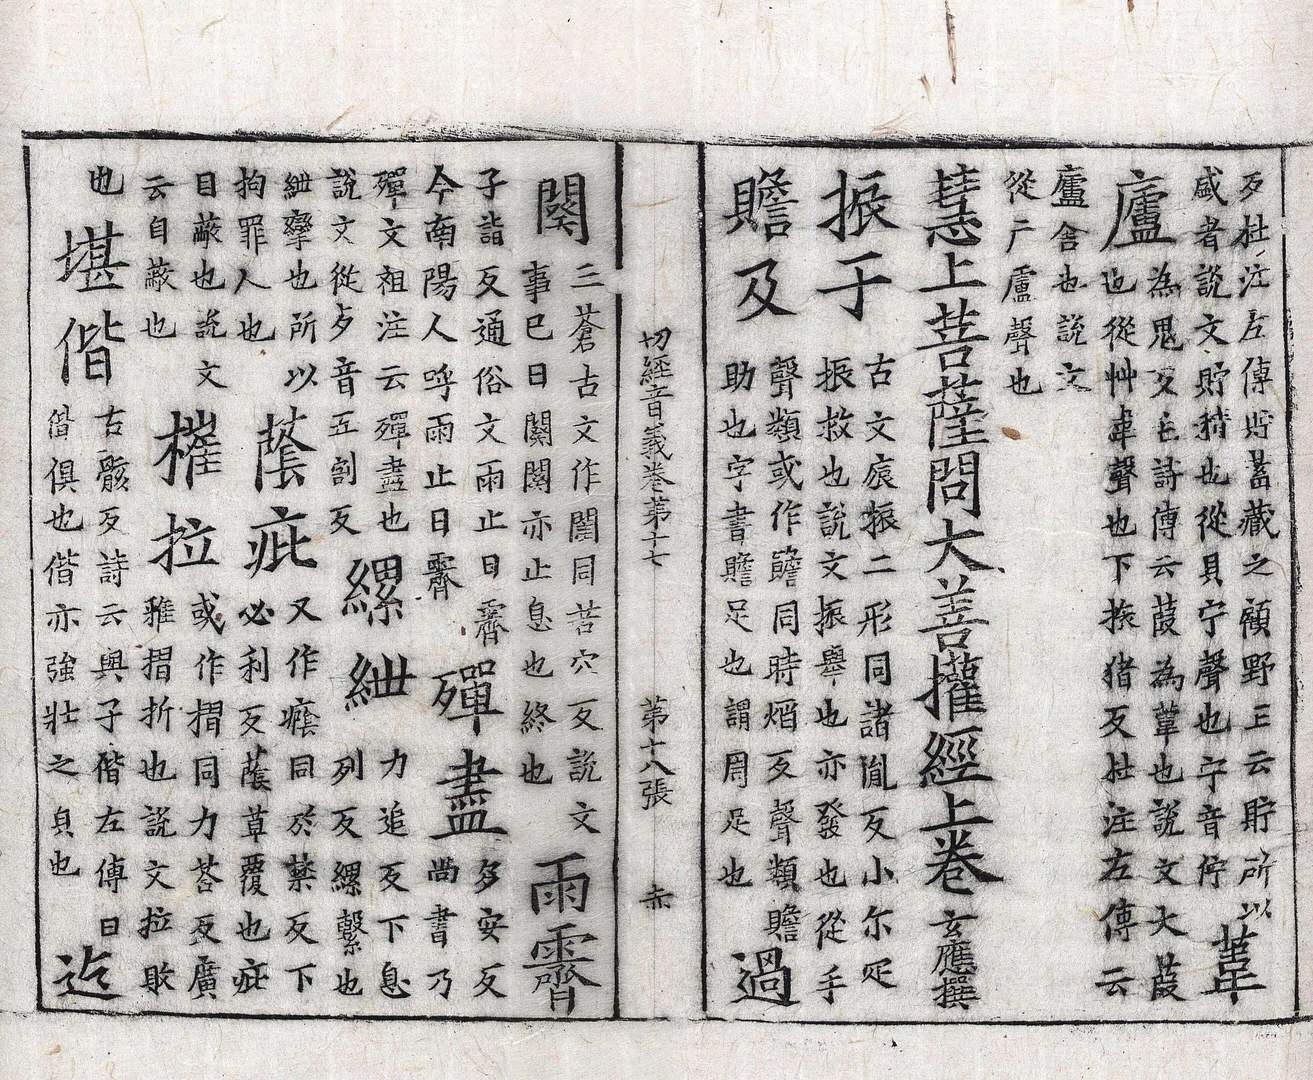 歹杜注左傳貯蓄藏之顧野王云貯所以
盛者說文貯積也從貝宁聲也宁音佇
葦
廬
為鬼反毛詩傳云葭為葦也說文大葭
也從艸韋聲也下猪反杜注左傳云
廬舍也說文
從广盧聲也
慧上菩薩問大善權經上卷 玄應撰
振于
古文宸振二形同諸胤反小尔疋
振救也說文振舉也亦發也從手
贍及
聲類或作同時焰反聲類贍
助也字書贍足也謂周足也
過
切經音義卷第十七 第十八張 赤
闋
三蒼古文作同苦穴反說文
事已曰闋闋亦止息也終也
雨霽
子詣反通俗文雨止曰霽
今南陽人呼雨止曰霽
殫盡
多安反
尚書乃
殫文祖注云殫盡也
說文從歹音五割反
縲紲
力追反下息
列反縲繫也
紲攣也所以
拘罪人也
蔭庇
又作㾙同於禁反下
必利反蔭草覆也庇
自蔽也說文
云自蔽也
摧拉
或作摺同力荅反廣
雅摺折也說文拉敗
也
堪偕
古骸反詩云與子偕左傳曰
偕俱也偕亦強壯之皃也
迄